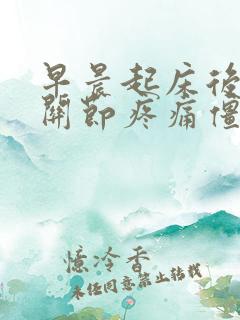 早晨起床後
關節疼痛僵
憶冷香
未任同意禁止转载